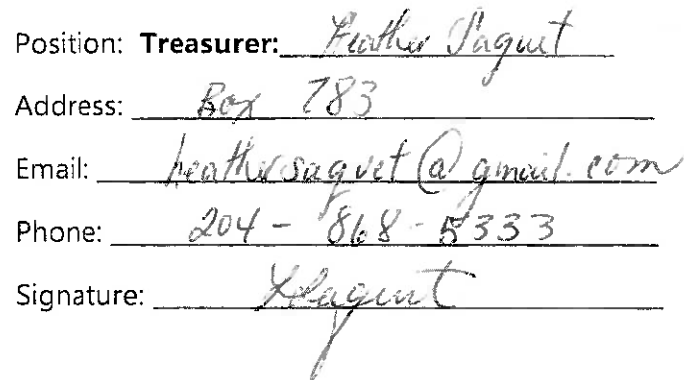 Position: Treasurer: Heather Saquet
Address: Box 783
Email: heathersaquet@gmail.com
Phone: 204-868-5333
Signature: HSaquet